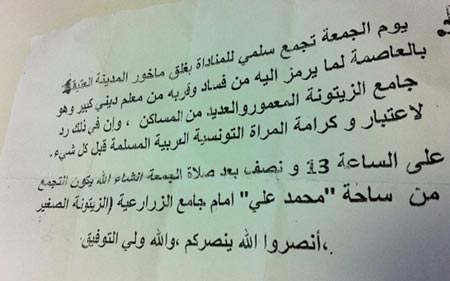 يوم الجمعة تجمع سلمي للمناداة بغلق ماخور المدينة العتيقة
بالعاصمة لما يرمز اليه من فساد وقربه من معلم ديني كبير وهو
جامع الزيتونة المعمور والعديد من المساكن ، وإن في ذلك رد
لاعتبار و كرامة المراة التونسية العربية المسلمة قبل كل شيء.
على الساعة 13 و نصف بعد صلاة الجمعة انشاء الله يكون التجمع
من ساحة "محمد علي" امام جامع الزرارعية (الزيتونة الصغير
،أنصروا الله ينصركم ،والله ولي التوفيق